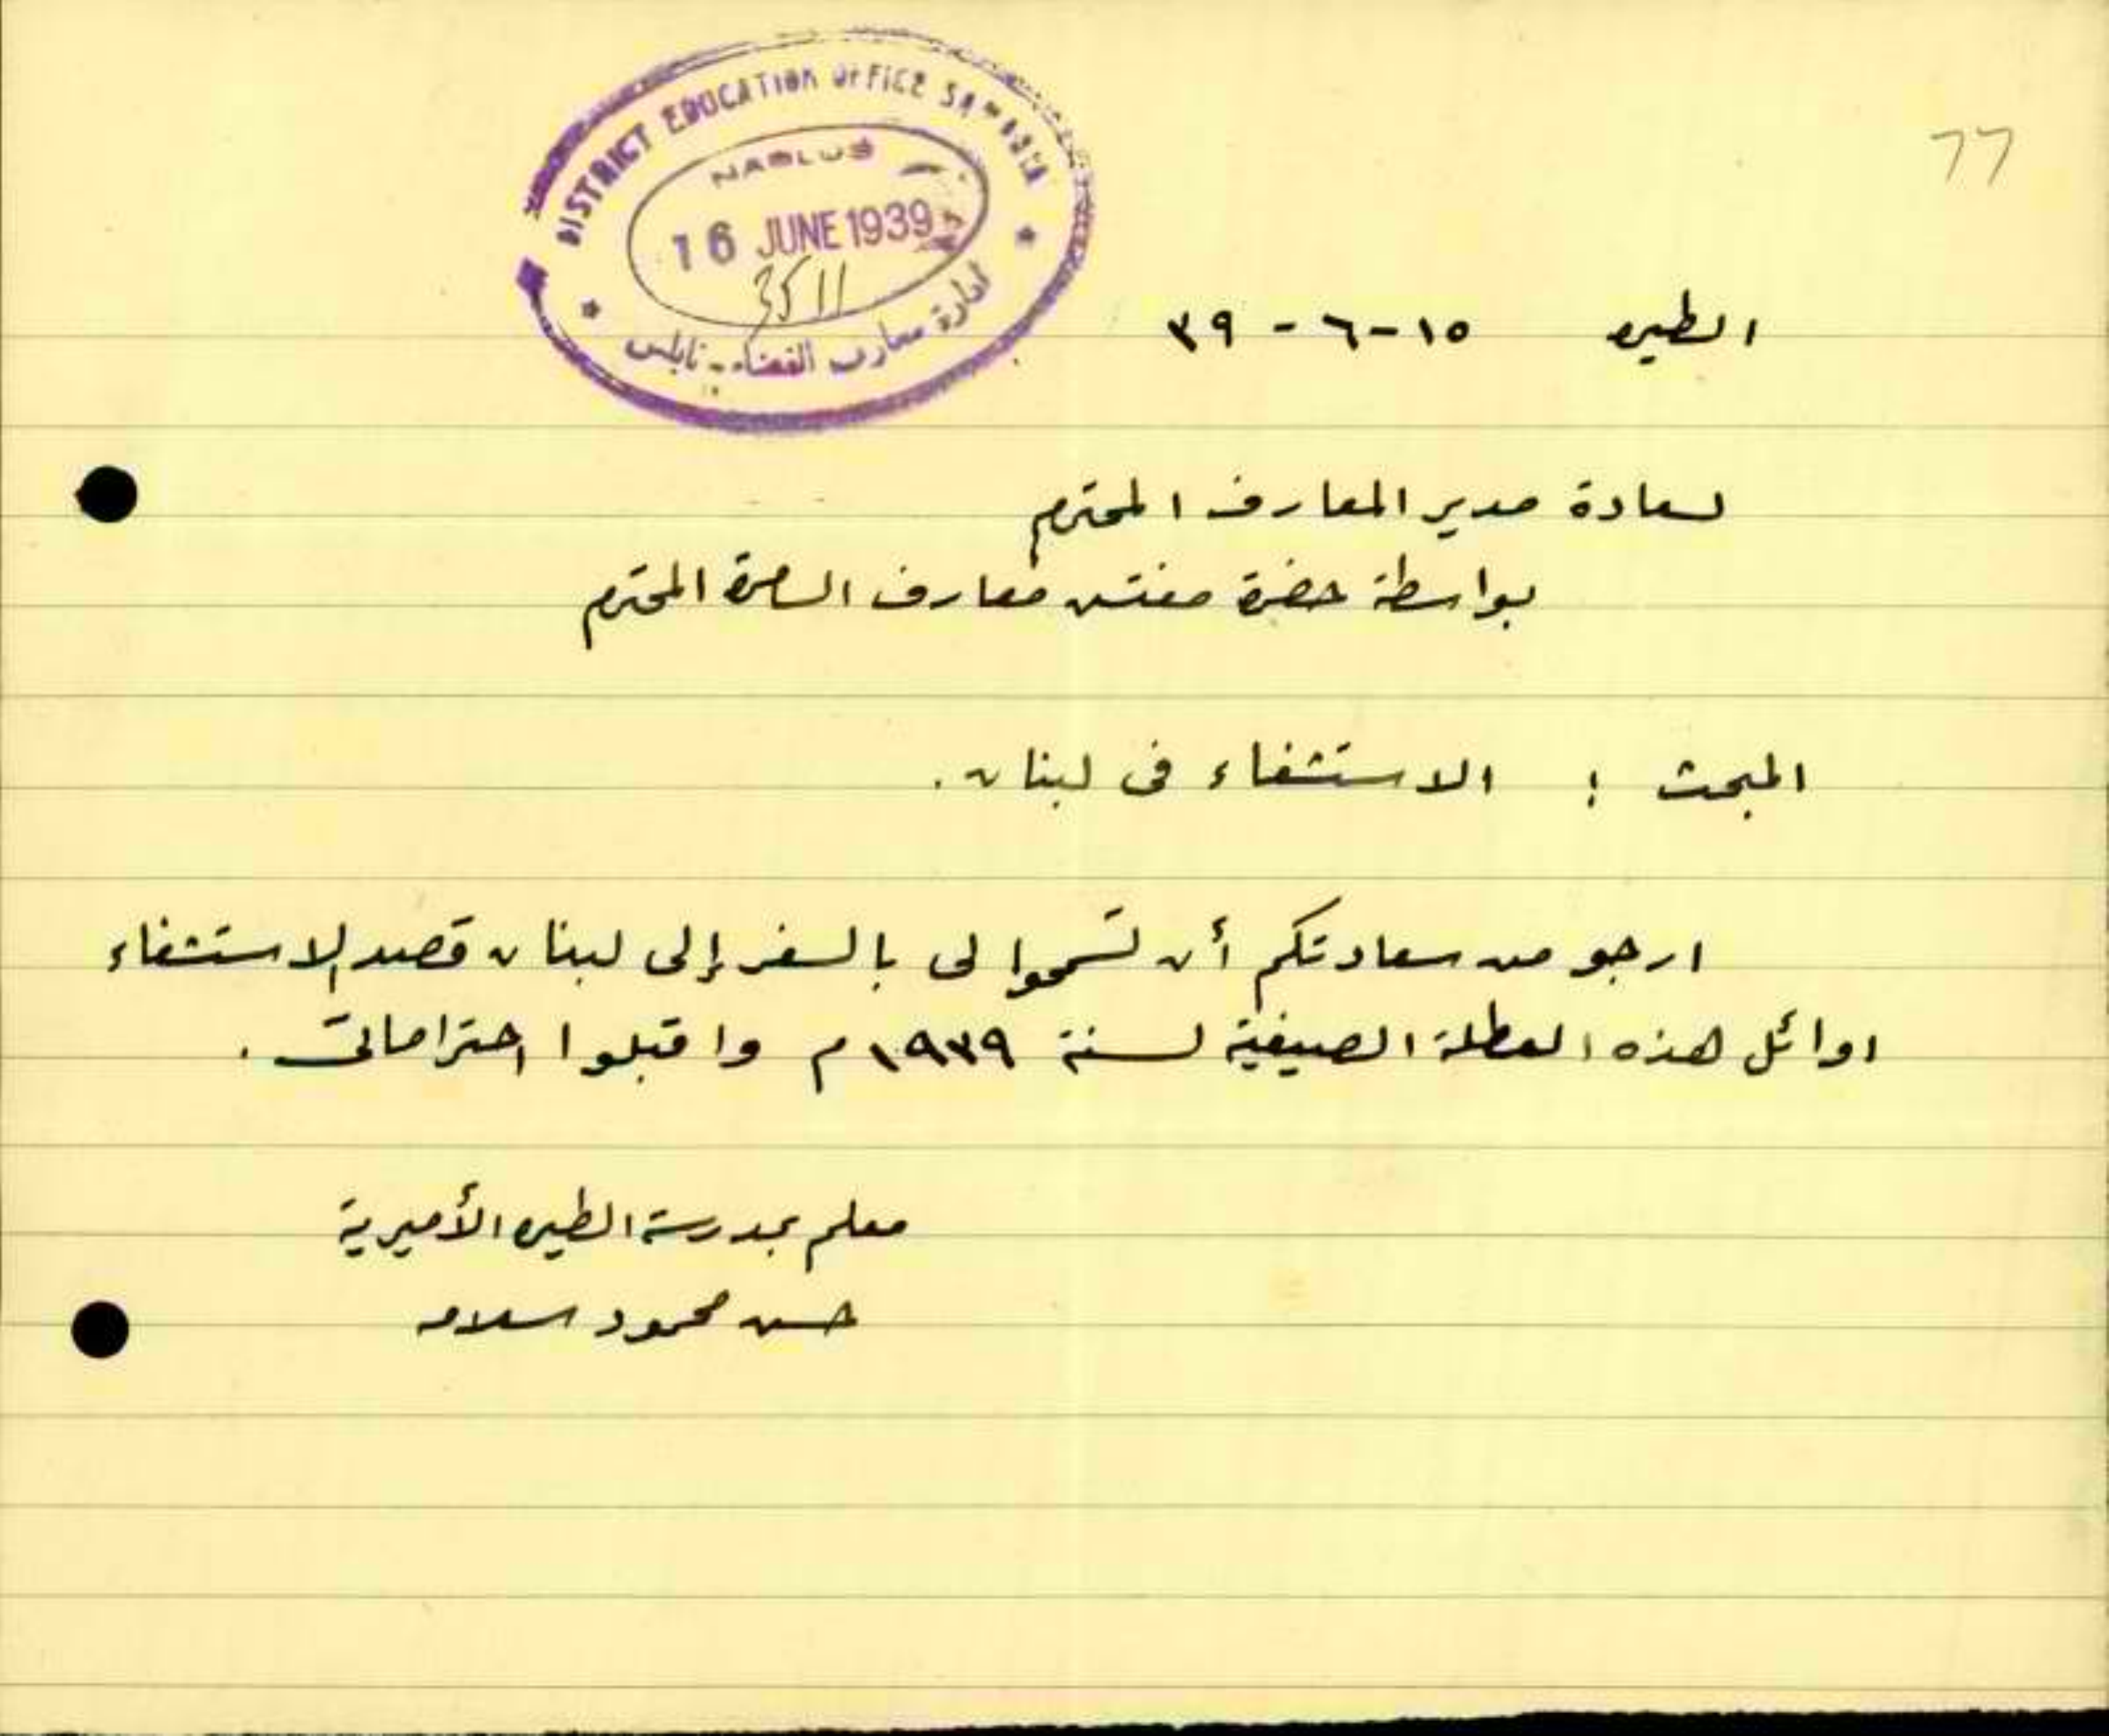 77
DISTRICT EDUCATION OFFICE SAMARIA
NABLUS
16 JUNE 1939
3511
ادارة معارف القضاء - نابلس
الطيره ١٥-٦-٣٩
لسعادة مدير المعارف المحترم
بواسطة حضرة مفتش معارف السامرة المحترم
المبحث : الاستشفاء فى لبنان .
ارجو من سعادتكم أن تسمحوا لى بالسفر إلى لبنان قصد الاستشفاء
اوائل هذه العطلة الصيفية لسنة ١٩٣٩م واقبلوا احتراماتى .
معلم بمدرسة الطيره الأميرية
حسن محمود سلامه